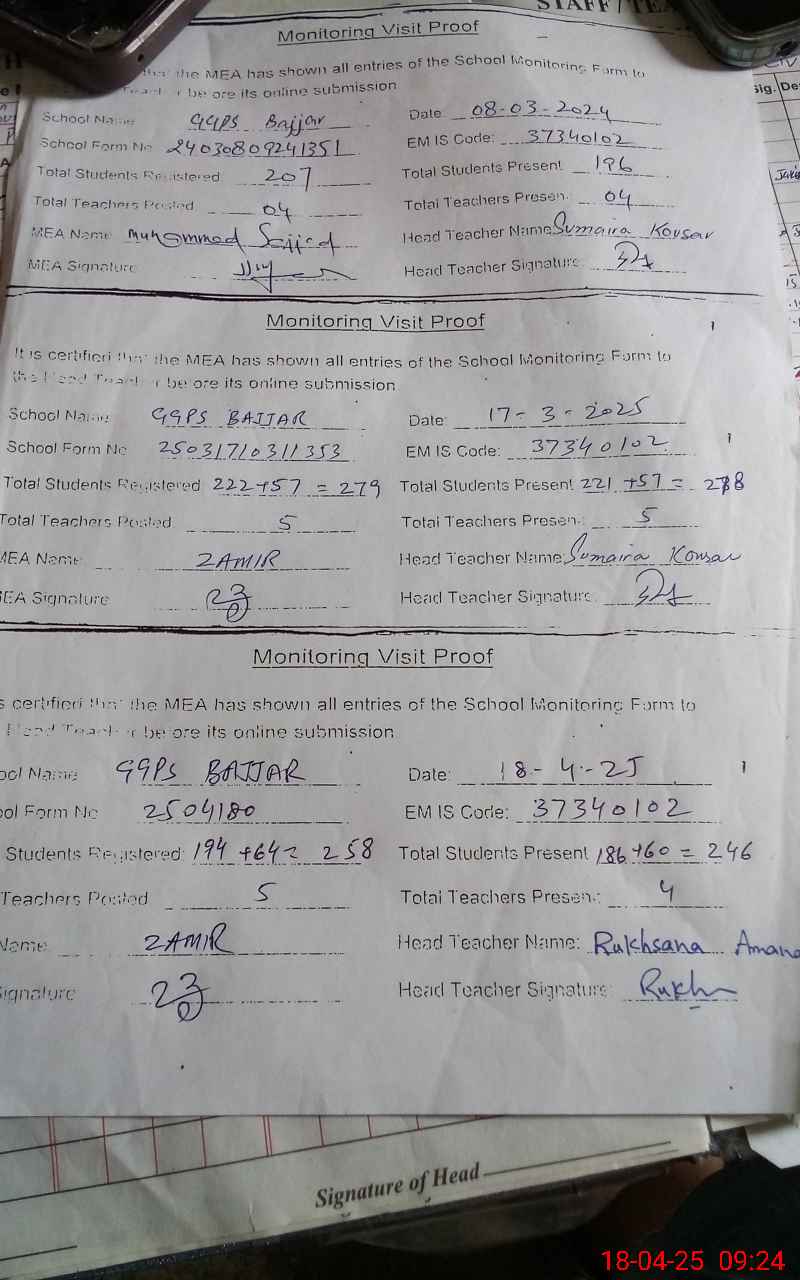 STAFF / TEA
Monitoring Visit Proof
that the MEA has shown all entries of the School Monitoring Form to
before its online submission
School Name GGPS Bajjar Date: 08-03-2024
School Form No 24030809241351 EMIS Code: 37340102
Total Students Registered 207 Total Students Present 196
Total Teachers Posted 04 Total Teachers Present: 04
MEA Name Muhammad Sajjad Head Teacher Name: Sumaira Kousar
MEA Signature Head Teacher Signature:
Monitoring Visit Proof
It is certified that the MEA has shown all entries of the School Monitoring Form to
the Head Teacher before its online submission
School Name GGPS BAJJAR Date: 17-3-2025
School Form No 25031710311353 EMIS Code: 37340102
Total Students Registered: 222+57 = 279 Total Students Present 221 +57 = 278
Total Teachers Posted 5 Total Teachers Present: 5
MEA Name ZAMIR Head Teacher Name: Sumaira Kousar
EA Signature Head Teacher Signature:
Monitoring Visit Proof
s certified that the MEA has shown all entries of the School Monitoring Form to
Head Teacher before its online submission
ool Name GGPS BAJJAR Date: 18-4-25
ol Form No 2504180 EMIS Code: 37340102
Students Registered: 194 +64= 258 Total Students Present 186+60 = 246
Teachers Posted 5 Total Teachers Present: 4
Name ZAMIR Head Teacher Name: Rukhsana Amana
ignature Head Teacher Signature: Rukh
Signature of Head
18-04-25 09:24